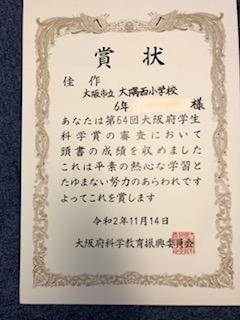 賞状
佳作
大阪市立 大隅西小学校
6年 様
あなたは第64回大阪府学生
科学賞の審査において
頭書の成績を収めました
これは平素の熱心な学習と
たゆまない努力のあらわれです
よってこれを賞します
令和2年11月14日
大阪府科学教育振興委員会